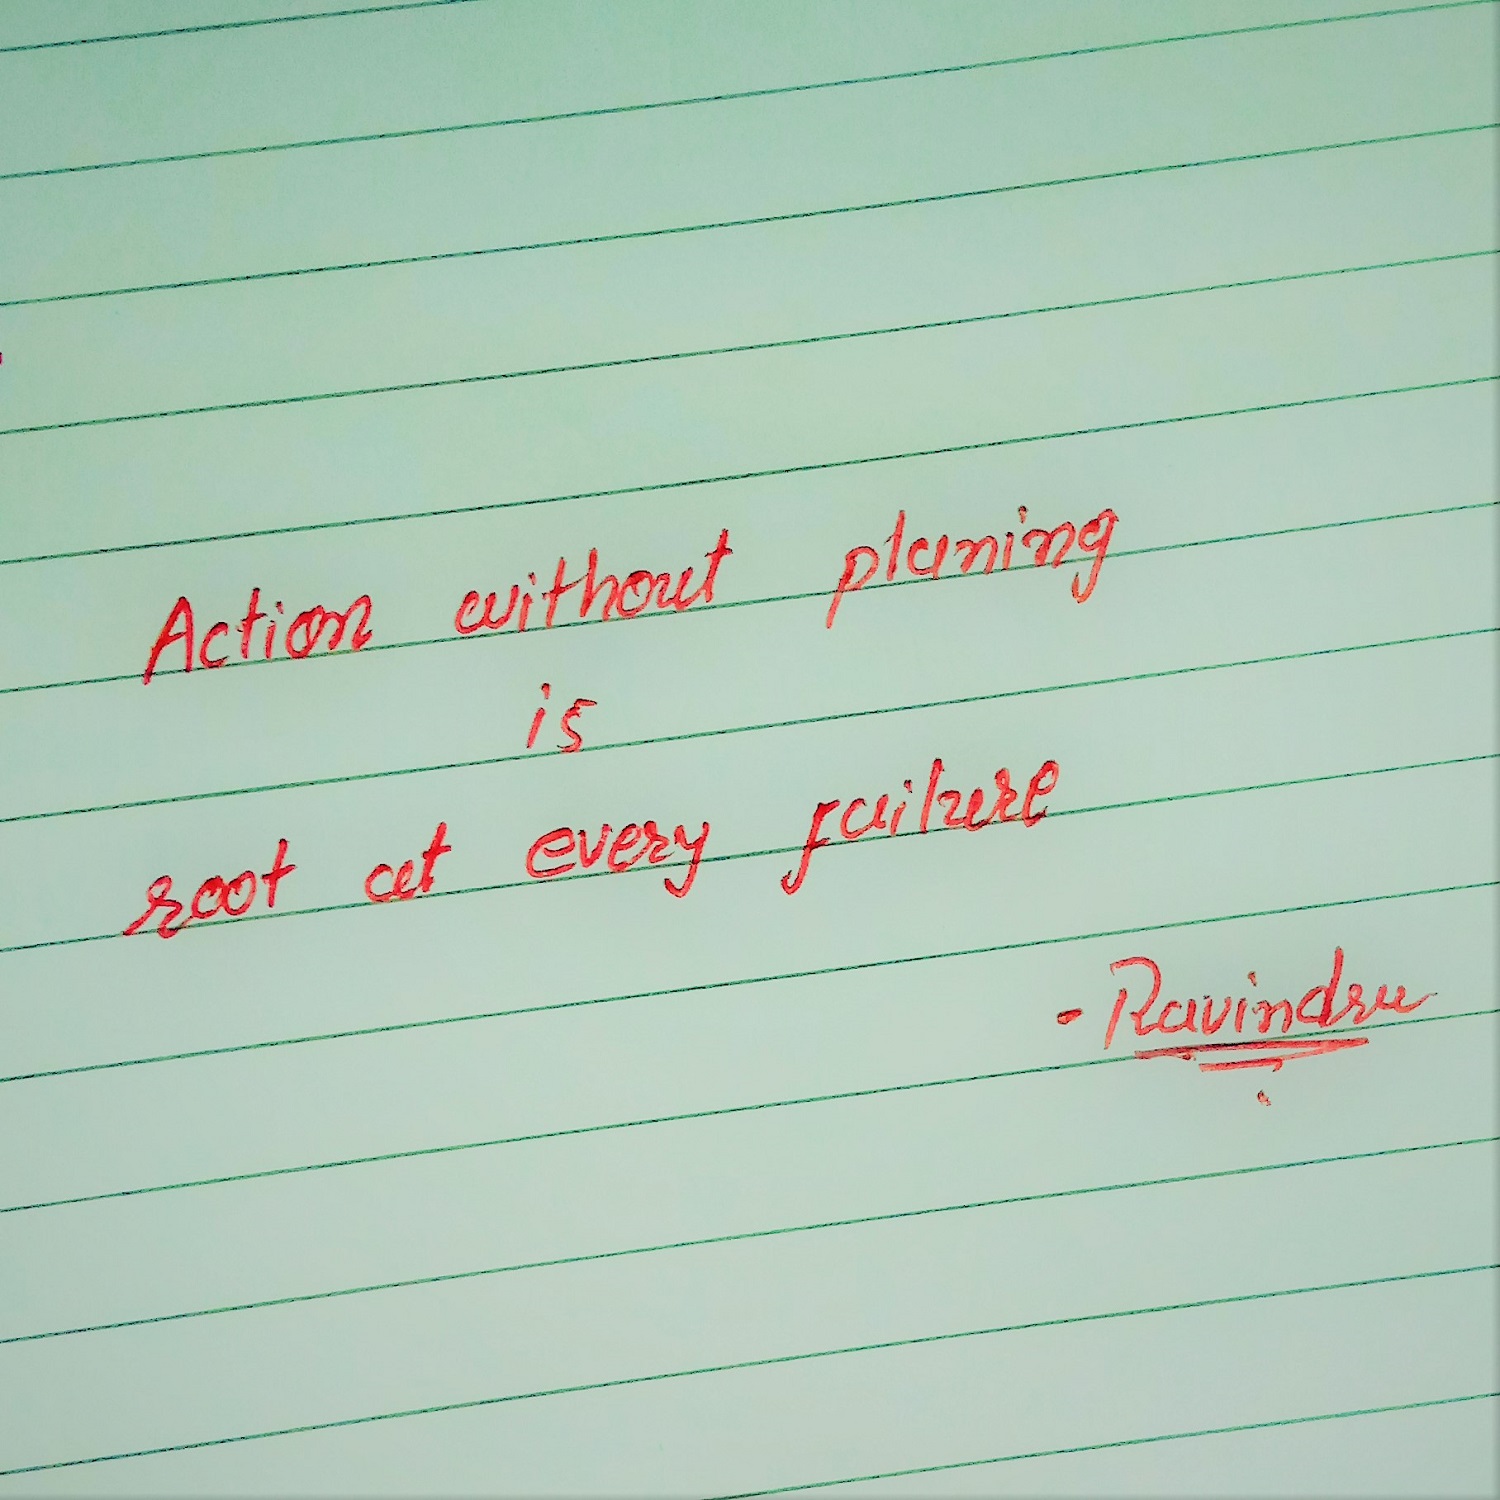 Action without planing
is
root at every failure
- Ravindra